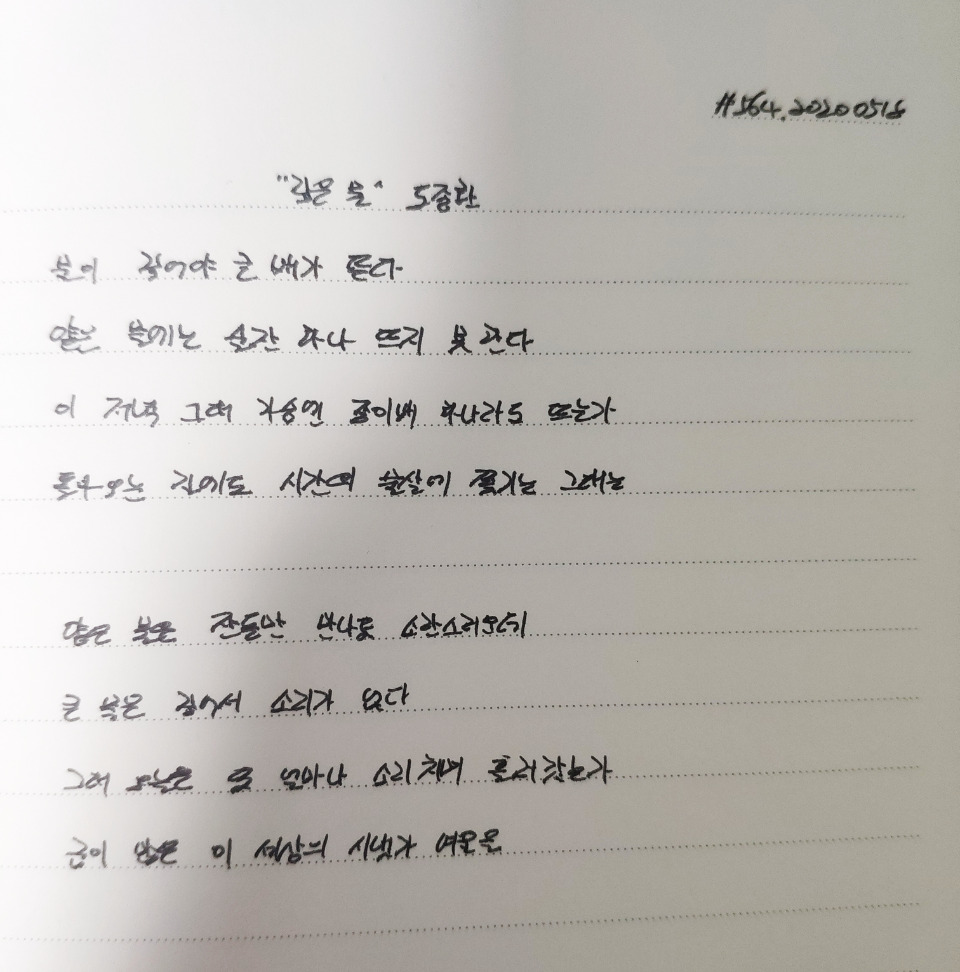 #564. 20200518
"깊은 물" 도종환
물이 깊어야 큰 배가 뜬다
얕은 물에는 술잔 하나 뜨지 못한다
이 저녁 그대 가슴엔 종이배 하나라도 뜨는가
돌아오는 길에도 시간의 물살에 쫓기는 그대는
얕은 물은 잔돌만 만나도 소란스러운데
큰 물은 깊어서 소리가 없다
그대 오늘은 또 얼마나 소리치며 흘러갔는가
굽이 많은 이 세상의 시냇가 여울을